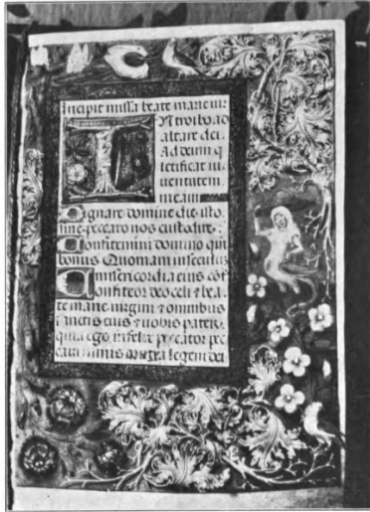 Incipit missa beate marie vir
Introibo ad
altare dei.
Ad deum q
letificat iu
uentutem
meam
Dignare domine die isto.
sine peccato nos custodire.
Confitemini domino qm
bonus Quoniam in seculum
misericordia eius
Confiteor deo celi & bea
te marie virgini & omnibus
sanctis eius & vobis pater.
quia ego peccator pec
caui nimis legem dei